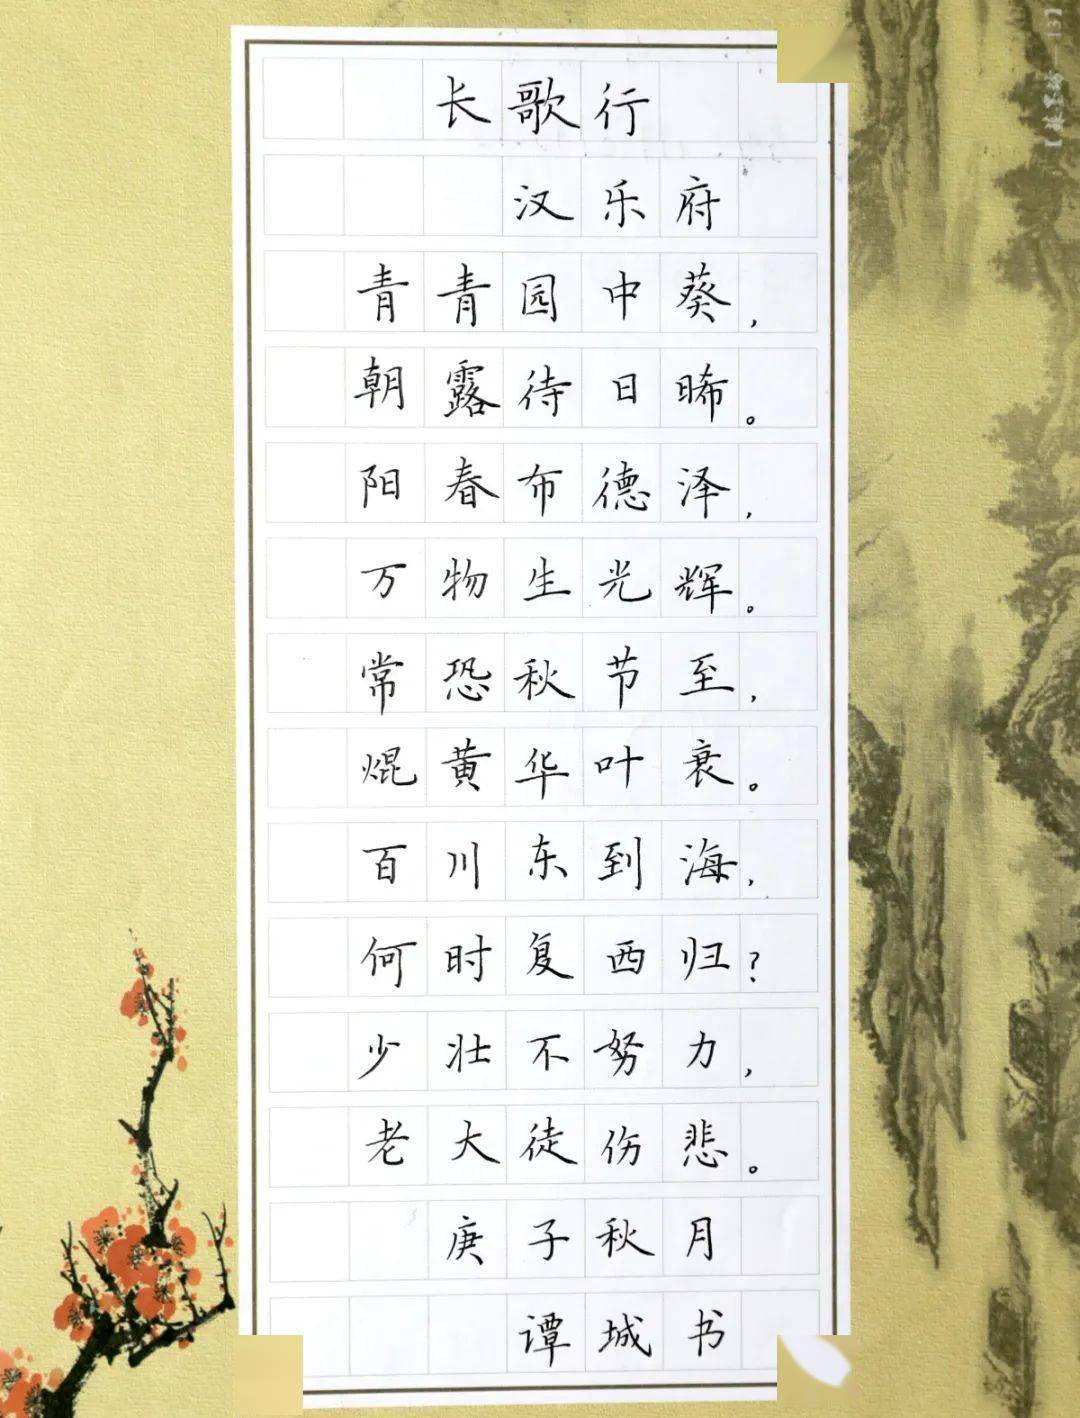 长歌行
汉乐府
青青园中葵，
朝露待日晞。
阳春布德泽，
万物生光辉。
常恐秋节至，
焜黄华叶衰。
百川东到海，
何时复西归？
少壮不努力，
老大徒伤悲。
庚子秋月
谭城书